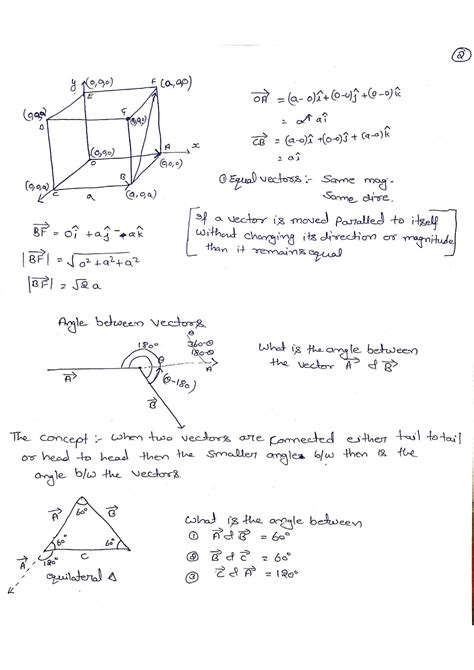 2
y (0,a,0) F (a,a,0)
E
(0,a,a) G (a,a,a)
D
(0,0,0) A x
O (a,0,0)
(0,0,a) B
C a (a,0,a)
OA = (a-0)î+(0-0)ĵ+(0-0)k̂
= aî
CB = (a-0)î+(0-0)ĵ+(a-a)k̂
= aî
① Equal vectors :- Same mag.
Same dire.
If a vector is moved paralled to itself
without changing its direction or magnitude
than it remains equal
BF = 0î + aĵ - ak̂
|BF| = √0²+a²+a²
|BF| = √2 a
Angle between vectors
180° θ
θ
360-θ
180-θ
A
(θ-180)
B
What is the angle between
the vector A & B
The concept :- When two vectors are connected either tail to tail
or head to head then the smaller angle b/w then is the
angle b/w the vectors.
A 60° B
60° 60°
C
A 120°
equilateral Δ
What is the angle between
① A & B = 60°
② B & C = 60°
③ C & A = 120°